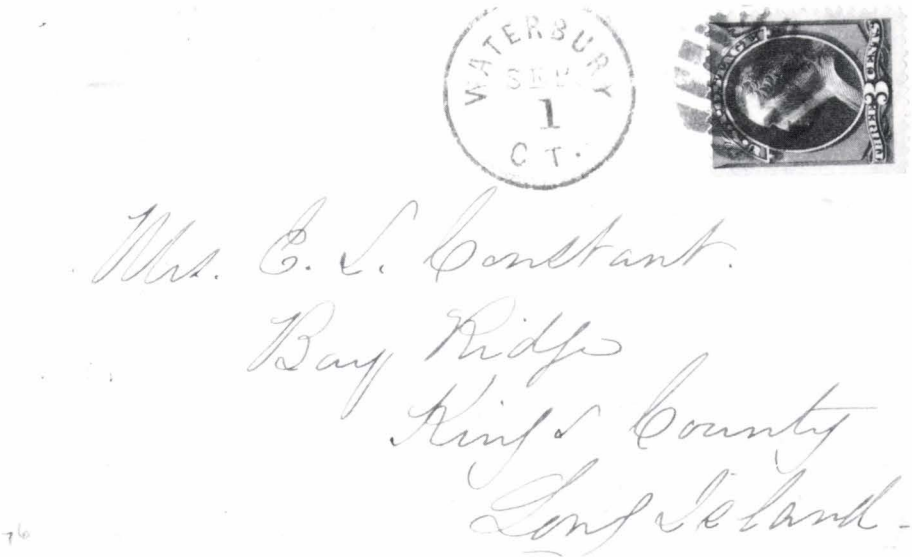 WATERBURY
SEP
1
CT.
Mrs. E. L. Constant.
Bay Ridge
Kings County
Long Island.
76